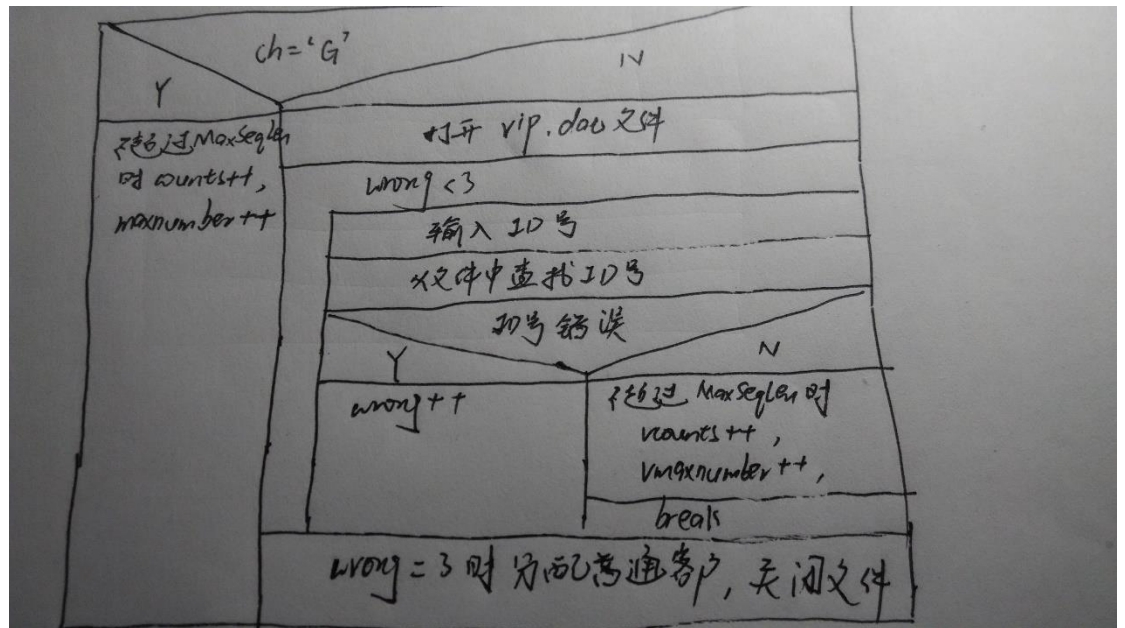 ch='G'
Y
N
打开 vip.dat 文件
不超过MaxSeqLen
时 counts++,
maxnumber++
wrong<3
输入 ID号
从文件中查找ID号
ID号错误
Y
N
wrong++
不超过 MaxSeqLen 时
vcounts++,
vmaxnumber++,
break
wrong=3时分配普通客户,关闭文件